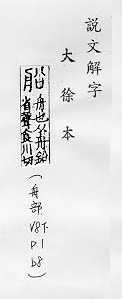 說文解字
大徐本
船 舟也从舟鉛
省聲食川切
(舟部
V8下
P.1
b8)